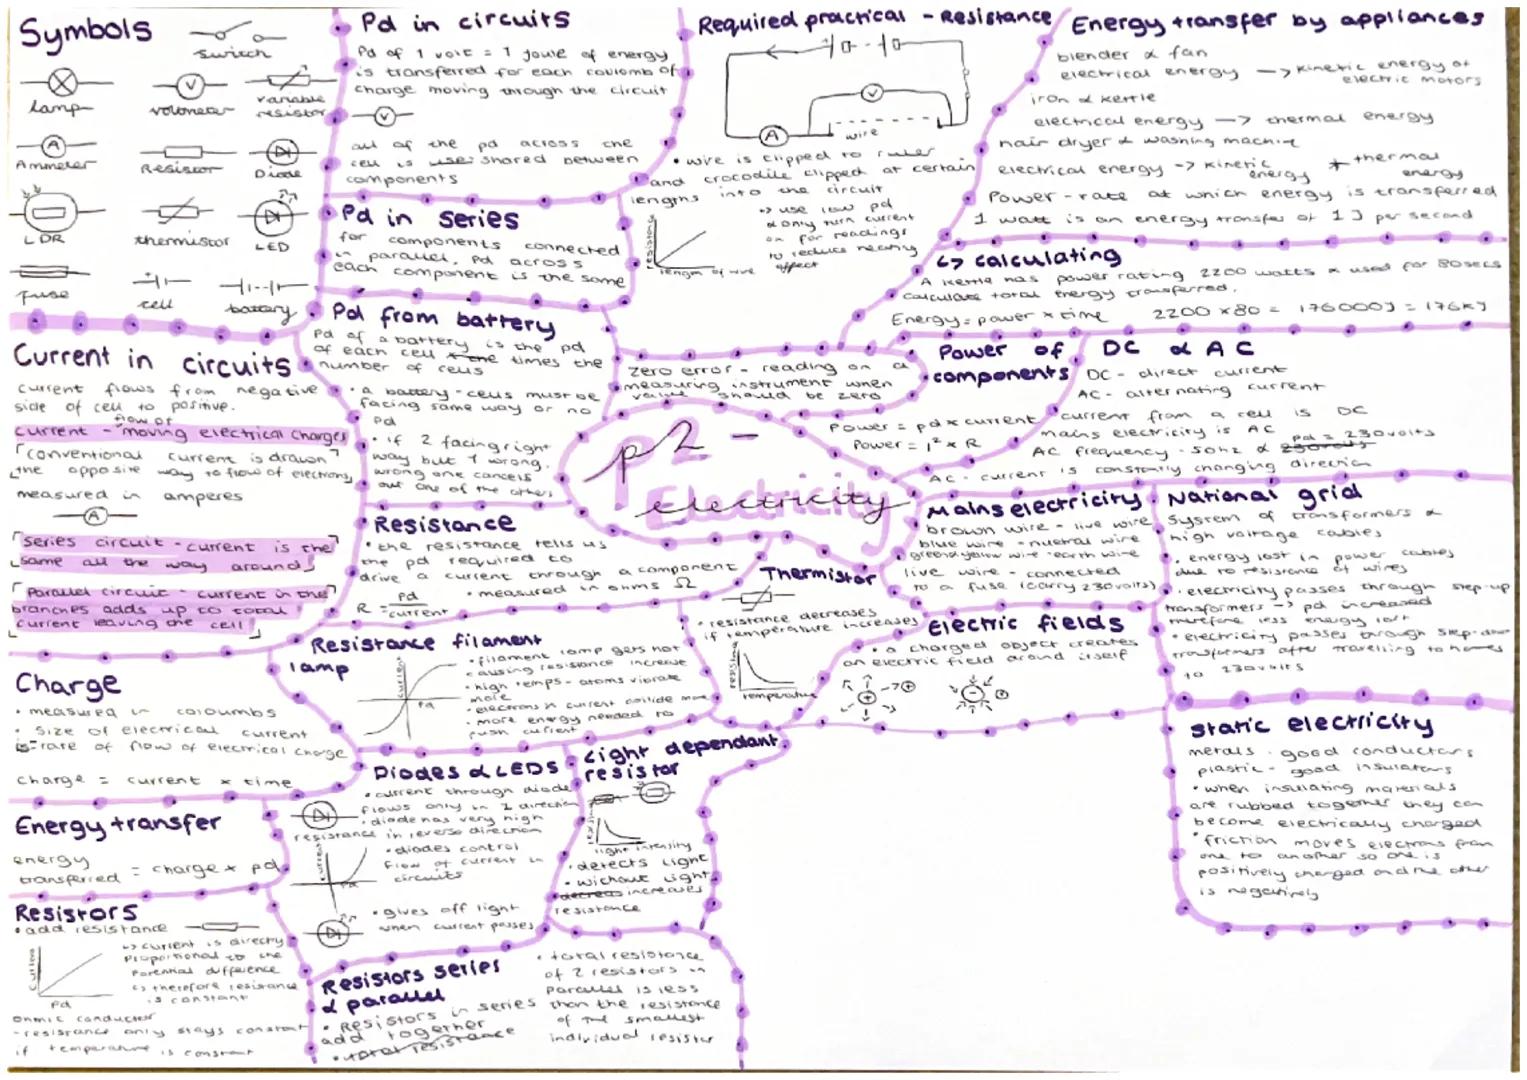 Symbols
switch
lamp
voltmeter
variable
resistor
Ammeter
Resistor
Diode
LDR
thermistor
LED
fuse
cell
battery
Pd in circuits
Pd of 1 volt = 1 joule of energy
is transferred for each coulomb of
charge moving through the circuit
V
all of the pd across the
cell is shared between
components
Pd in series
for components connected
in parallel, Pd across
each component is the same
Pd from battery
Pd of a battery is the pd
of each cell times the
number of cells
• a battery - cells must be
facing same way or no
Pd
• if 2 facing right
way but 1 wrong,
wrong one cancels
out one of the others
Required practical - Resistance
V
A
wire
• wire is clipped to ruler
and crocodile clipped at certain
lengths into the circuit
↳ use low pd
& only turn current
on for readings
to reduce heating
effect
resistance
length of wire
zero error - reading on a
measuring instrument when
value should be zero
Energy transfer by appliances
blender & fan
electrical energy → kinetic energy of
electric motors
iron & kettle
electrical energy → thermal energy
hair dryer & washing machine
electrical energy → kinetic energy + thermal energy
Power - rate at which energy is transferred
1 watt is an energy transfer of 1 J per second
↳ calculating
A kettle has power rating 2200 watts & used for 80secs
calculate total energy transferred.
Energy = power × time 2200 × 80 = 176000J = 176kJ
Power of
components
Power = pd × current
Power = I² × R
DC & AC
DC - direct current
AC - alternating current
current from a cell is DC
mains electricity is AC
AC frequency - 50hz & pd = 230volts
AC - current is constantly changing direction
p2 -
Electricity
electricity
Current in circuits
current flows from negative
side of cell to positive.
current - flow of moving electrical charges
conventional current is drawn
the opposite way to flow of electrons
measured in amperes
A
series circuit - current is the
same all the way around
Parallel circuit - current in the
branches adds up to total
current leaving the cell
Resistance
• the resistance tells us
the pd required to
drive a current through a component
• measured in ohms Ω
R = pd
current
Mains electricity
brown wire - live wire
blue wire - nutral wire
green & yellow wire - earth wire
live wire - connected
to a fuse (carry 230volts)
National grid
System of transformers &
high voltage cables
• energy lost in power cables
due to resistance of wires
• electricity passes through step-up
transformers → pd increased
therefore less energy lost
• electricity passes through step-down
transformers after travelling to homes
to 230volts
Thermistor
• resistance decreases
if temperature increases
resistance
temperature
Electric fields
• a charged object creates
an electric field around itself
Resistance filament
lamp
current
Pd
• filament lamp gets hot
causing resistance increase
• high temps - atoms vibrate
more
• electrons in current collide more
• more energy needed to
push current
Charge
• measured in coloumbs
• size of electrical current
is rate of flow of electrical charge
charge = current × time
Diodes & LEDS
• current through diode
flows only in 1 direction
• diode has very high
resistance in reverse direction
current
Pd
• diodes control
flow of current in
circuits
• gives off light
when current passes
Light dependant
resistor
resistance
light intensity
• detects light
• without light
increases
resistance
Static electricity
metals - good conductors
plastic - good insulators
• when insulating materials
are rubbed together they can
become electrically charged
• friction moves electrons from
one to another so one is
positively charged and the other
is negatively
Energy transfer
energy
transferred = charge × pd
Resistors
• add resistance
↳ current is directly
proportional to the
potential difference
↳ therefore resistance
is constant
current
Pd
ohmic conductor
- resistance only stays constant
if temperature is constant
Resistors series
& parallel
• Resistors in series
add together
• total resistance
• total resistance
of 2 resistors in
parallel is less
than the resistance
of the smallest
individual resistor